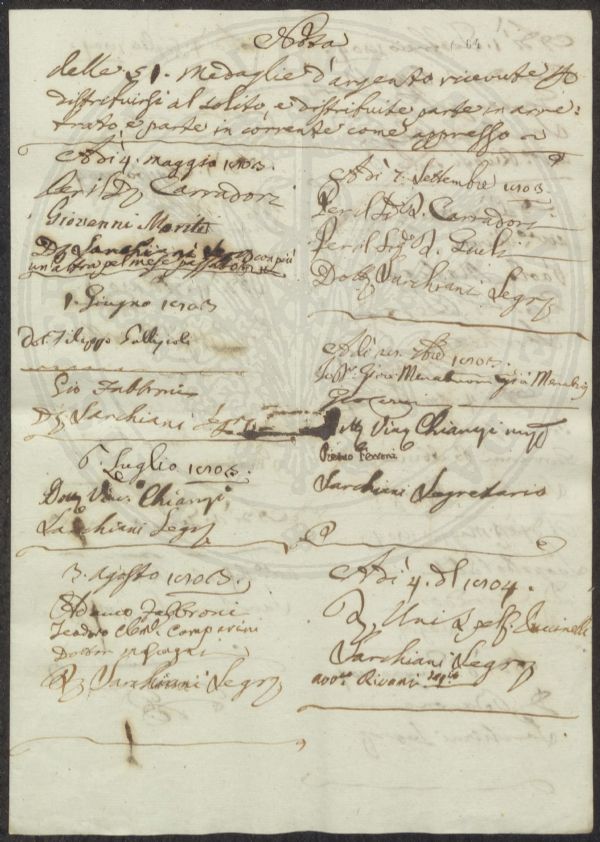 Nota
delle 51. Medaglie d'argento ricevute p
distribuirsi al solito, e distribuite parte in arre:
trato e parte in corrente come appresso
Adì 4. maggio 1803
Per il D. Carradori
Giovanni Mariti
D. Sarchiani Seg
un altra pel mese passato
1. Giugno 1803
Dot. Filippo Gallizioli
Gio Fabbroni
D. Sarchiani Segr
6. Luglio 1803
Dott. Vinc. Chiarugi
Sarchiani Segr
3. Agosto 1803
Adamo Fabbroni
Teodoro Comparini
Dottor
D. Sarchiani Segr
Adì 7. Settembre 1803
Per il Sig. D. Carradori
Per il Sig. D.
Dott. Sarchiani Segr
Adì 9bre 1803
Menabuoni
Dott. Vinc. Chiarugi
Pietro Ferroni
Sarchiani Segretario
Adì 4. 1804.
D. pel Zuccinelli
Sarchiani Segr